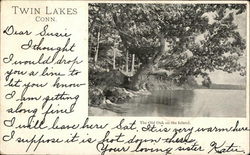 TWIN LAKES
CONN.
Dear Susie
I thought
I would drop
you a line to
let you know
I am getting
along fine
The Old Oak on the Island.
I will leave here Sat. It is very warm here
I suppose it is hot down there
Your loving sister Katie